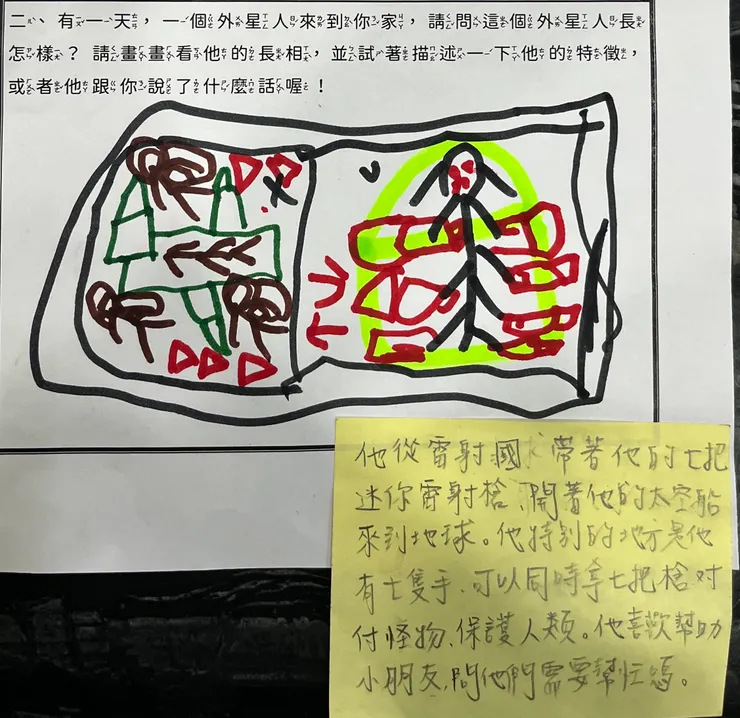 二、有一天，一個外星人來到你家，請問這個外星人長
怎樣？請畫畫看他的長相，並試著描述一下他的特徵，
或者他跟你說了什麼話喔！
他從雷射國帶著他的七把
迷你雷射槍、開著他的太空船
來到地球。他特別的地方是他
有七隻手、可以同時拿七把槍對
付怪物、保護人類。他喜歡幫助
小朋友、問他們需要幫忙嗎。